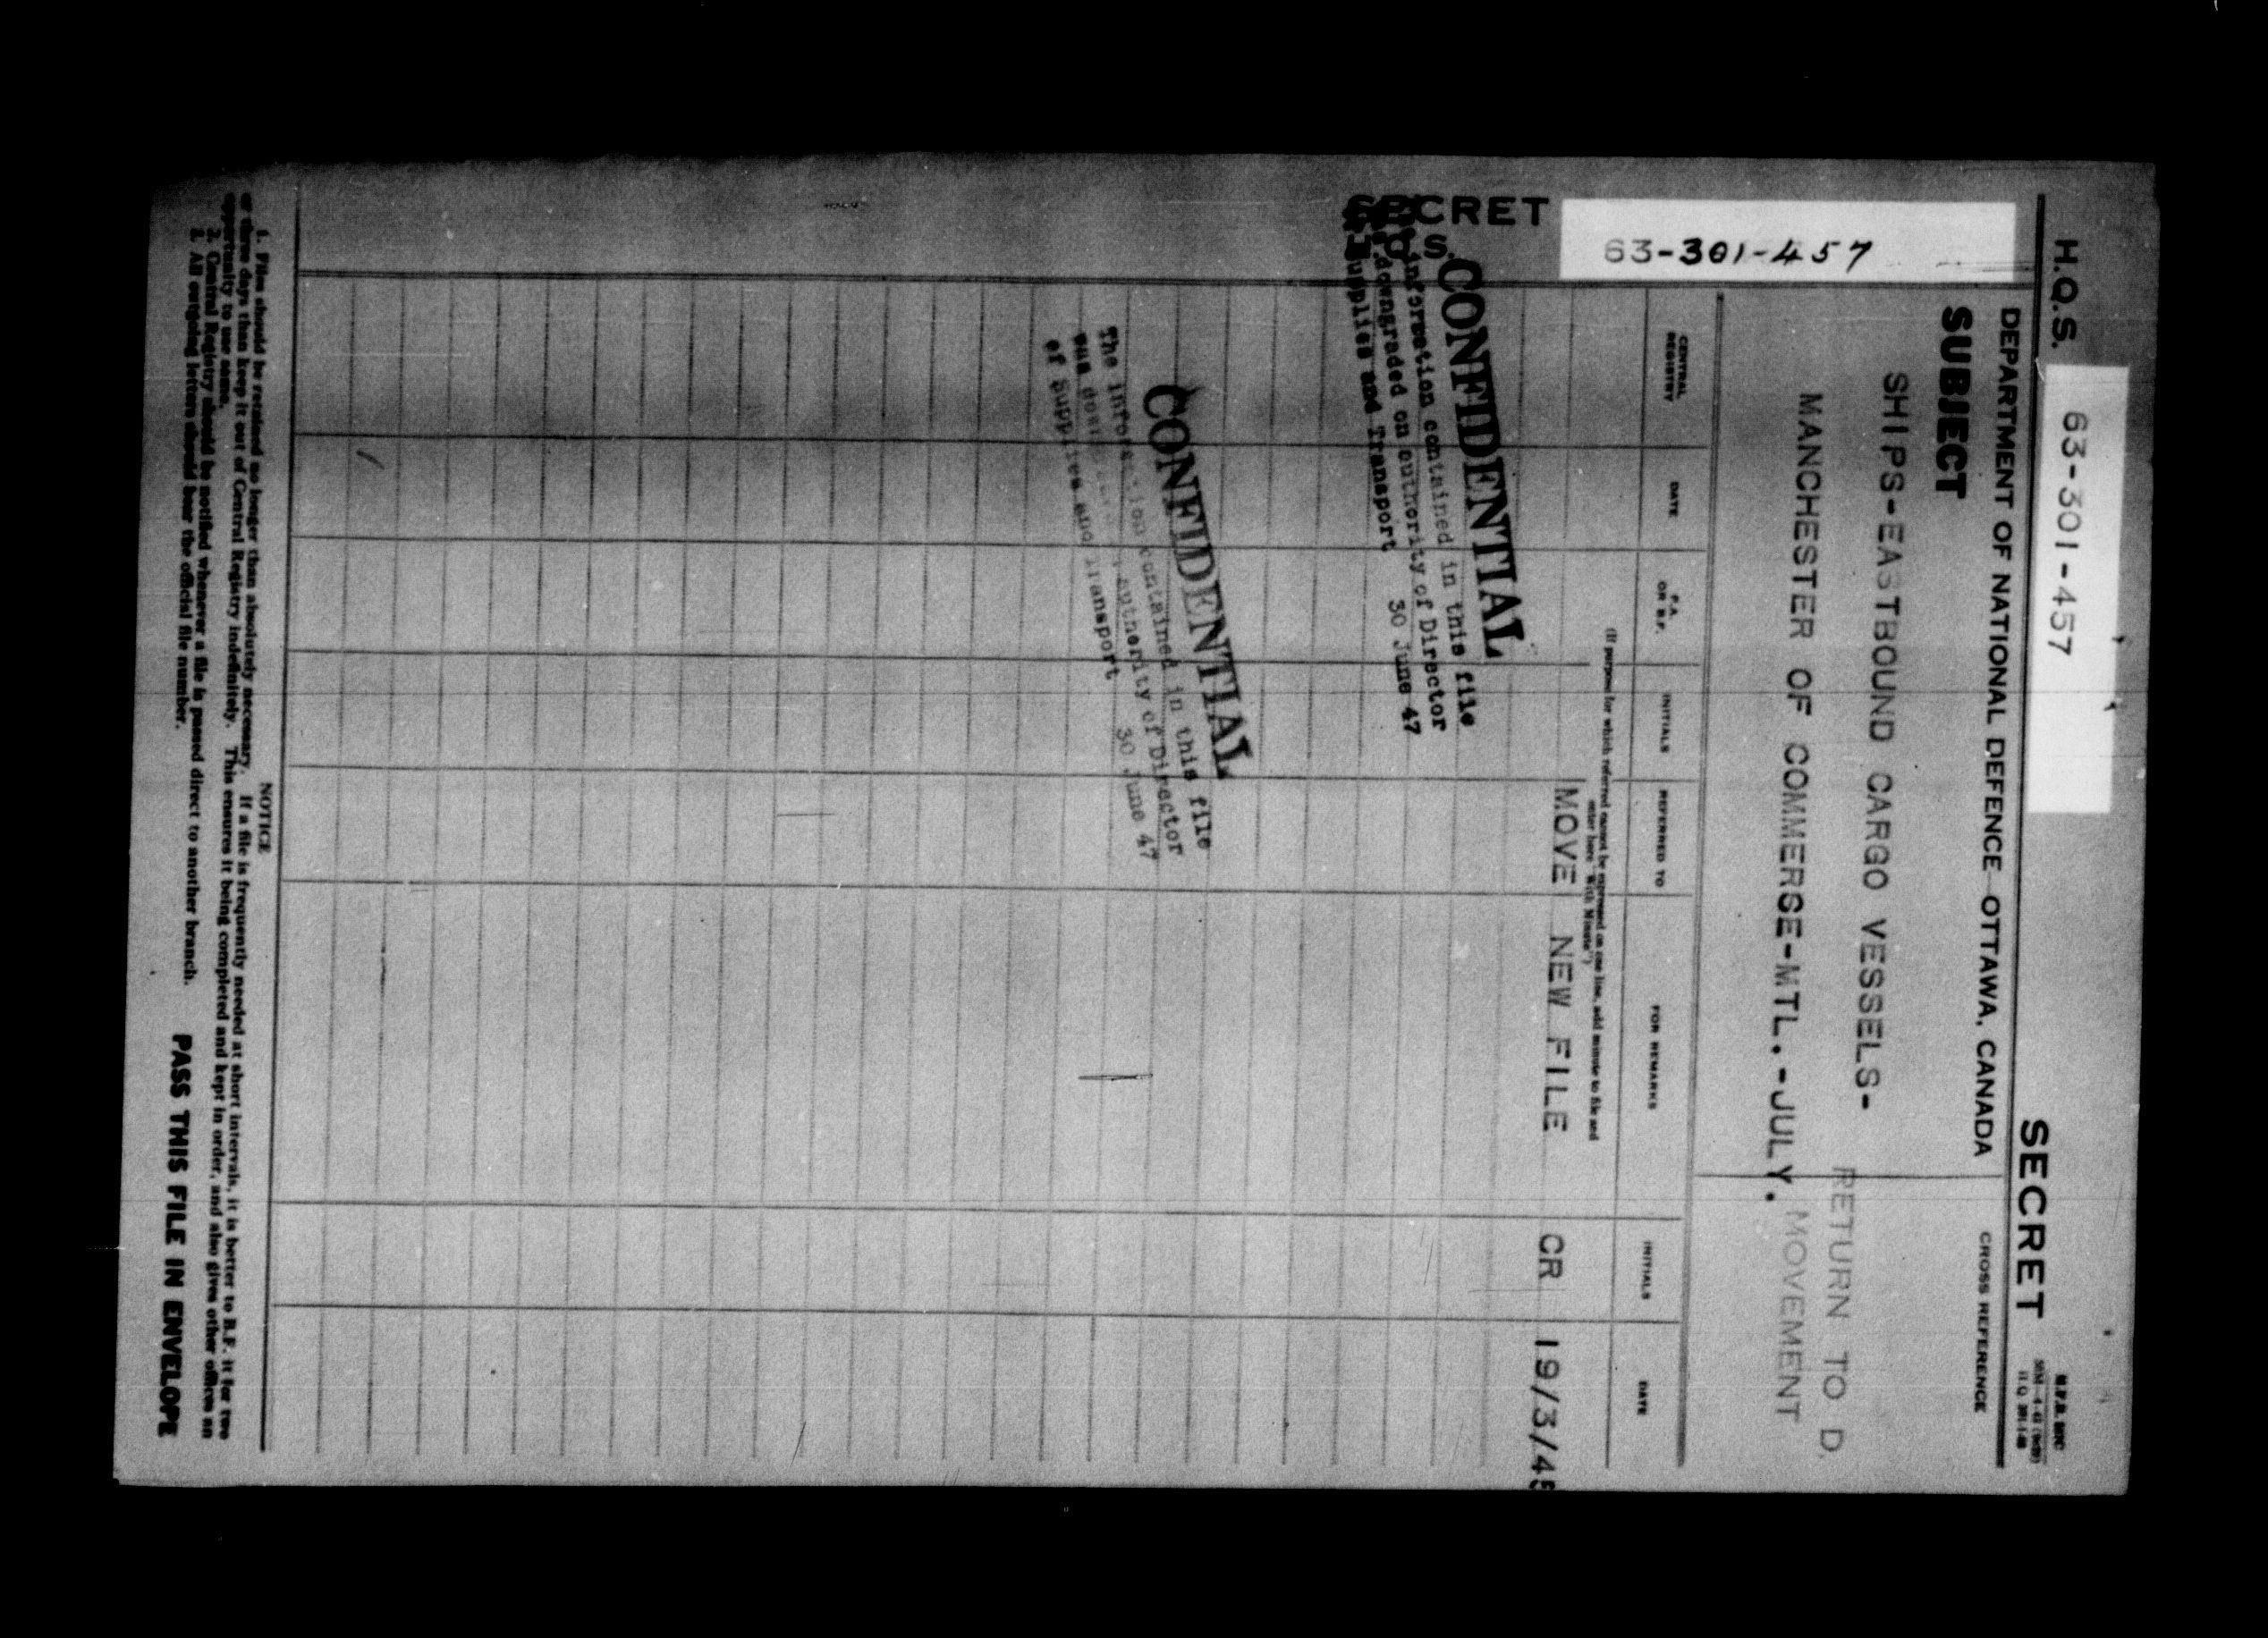 H.Q.S. 63-301-457
SECRET
DEPARTMENT OF NATIONAL DEFENCE—OTTAWA, CANADA
CROSS REFERENCE
SUBJECT
63-301-457
SHIPS-EASTBOUND CARGO VESSELS-
RETURN TO D
MANCHESTER OF COMMERSE-MTL.-JULY.
MOVEMENT
SECRET
CENTRAL REGISTRY
DATE
P.A. OR B.F.
INITIALS
REFERRED TO
FOR REMARKS
INITIALS
DATE
(If purpose for which referred cannot be expressed on one line, add minute to file and
enter here "With Minute")
MOVE NEW FILE CR 19/3/45
CONFIDENTIAL
information contained in this file
downgraded on authority of Director
Supplies and Transport 30 June 47
CONFIDENTIAL
The information contained in this file
was authority of Director
of Supplies and Transport 30 June 47
NOTICE
1. Files should be retained no longer than absolutely necessary. If a file is frequently needed at short intervals, it is better to B.F. it for two
or three days than keep it out of Central Registry indefinitely. This ensures it being completed and kept in order, and also gives other offices an
opportunity to use same.
2. Central Registry should be notified whenever a file is passed direct to another branch.
3. All outgoing letters should bear the official file number.
PASS THIS FILE IN ENVELOPE